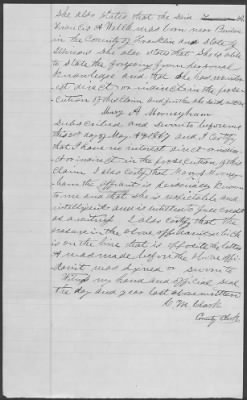 She also states that the said
Francis A Webb was born near Benton
in the County of Franklin and State of
Illinois She also states that She is able
to state the foregoing from personal
knowledge and that She has no inter
est direct or indirect in the prose-
cution of this claim and further she said not
Mary A Morningham
Subscribed and sworn to before me
this day of May A D 1889 and I Certify
that I have no interest direct or indi
rect in the prosecution of this
claim I also certify that Mary Morning
ham the affiant is personally known
to me and that she is respectable and
intelligent and is entitled to full credit
as a witness I also certify that the
erasure in the above affidavit which
is on the line that is opposite the letter
A was made before the above affi-
davit was signed or sworn to
Witness my hand and official seal
the day and year last above written
C M Clark
County Clerk